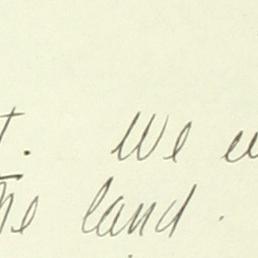 t. We
the land.